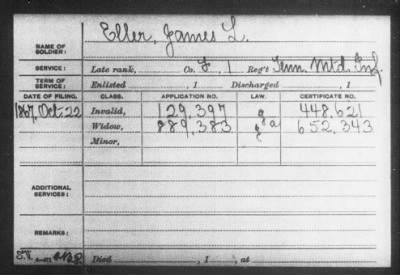 Eller, James L.
NAME OF SOLDIER:
SERVICE: Late rank, Co. F, 1 Reg't Tenn. Mtd. Inf.
TERM OF SERVICE: Enlisted , 1 Discharged , 1
DATE OF FILING. CLASS. APPLICATION NO. LAW. CERTIFICATE NO.
1867, Oct. 22 Invalid, 129,397 448,621
Widow, 889,383 652,343
Minor,
ADDITIONAL SERVICES:
REMARKS:
Died , 1 , at